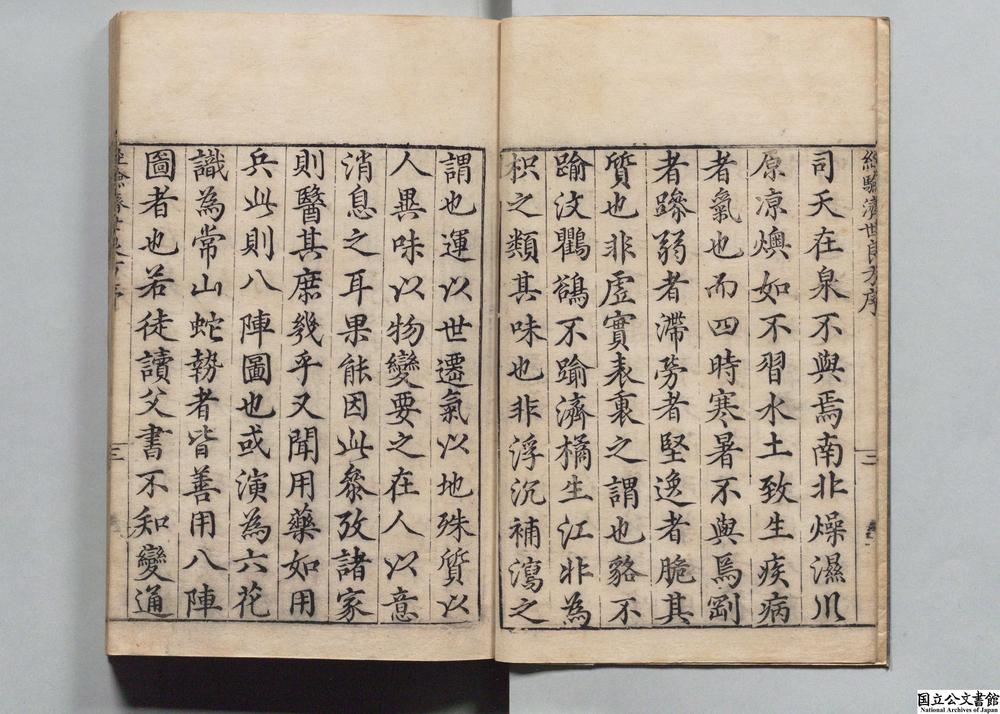 經驗濟世良方序
三
司天在泉不與焉南北燥濕川
原凉燠如不習水土致生疾病
者氣也而四時寒暑不與焉劉
者躁弱者滯勞者堅逸者脆其
質也非虛實表裏之謂也貉不
踰汶鸜鵒不踰濟橘生江北為
枳之類其味也非浮沉補瀉之
謂也運以世遷氣以地殊質以
人異味以物變要之在人以意
消息之耳果能因此叅攷諸家
則醫其庶幾乎又聞用藥如用
兵此則八陣圖也或演為六花
識為常山蛇勢者皆善用八陣
圖者也若徒讀父書不知變通
三
国立公文書館
National Archives of Japan